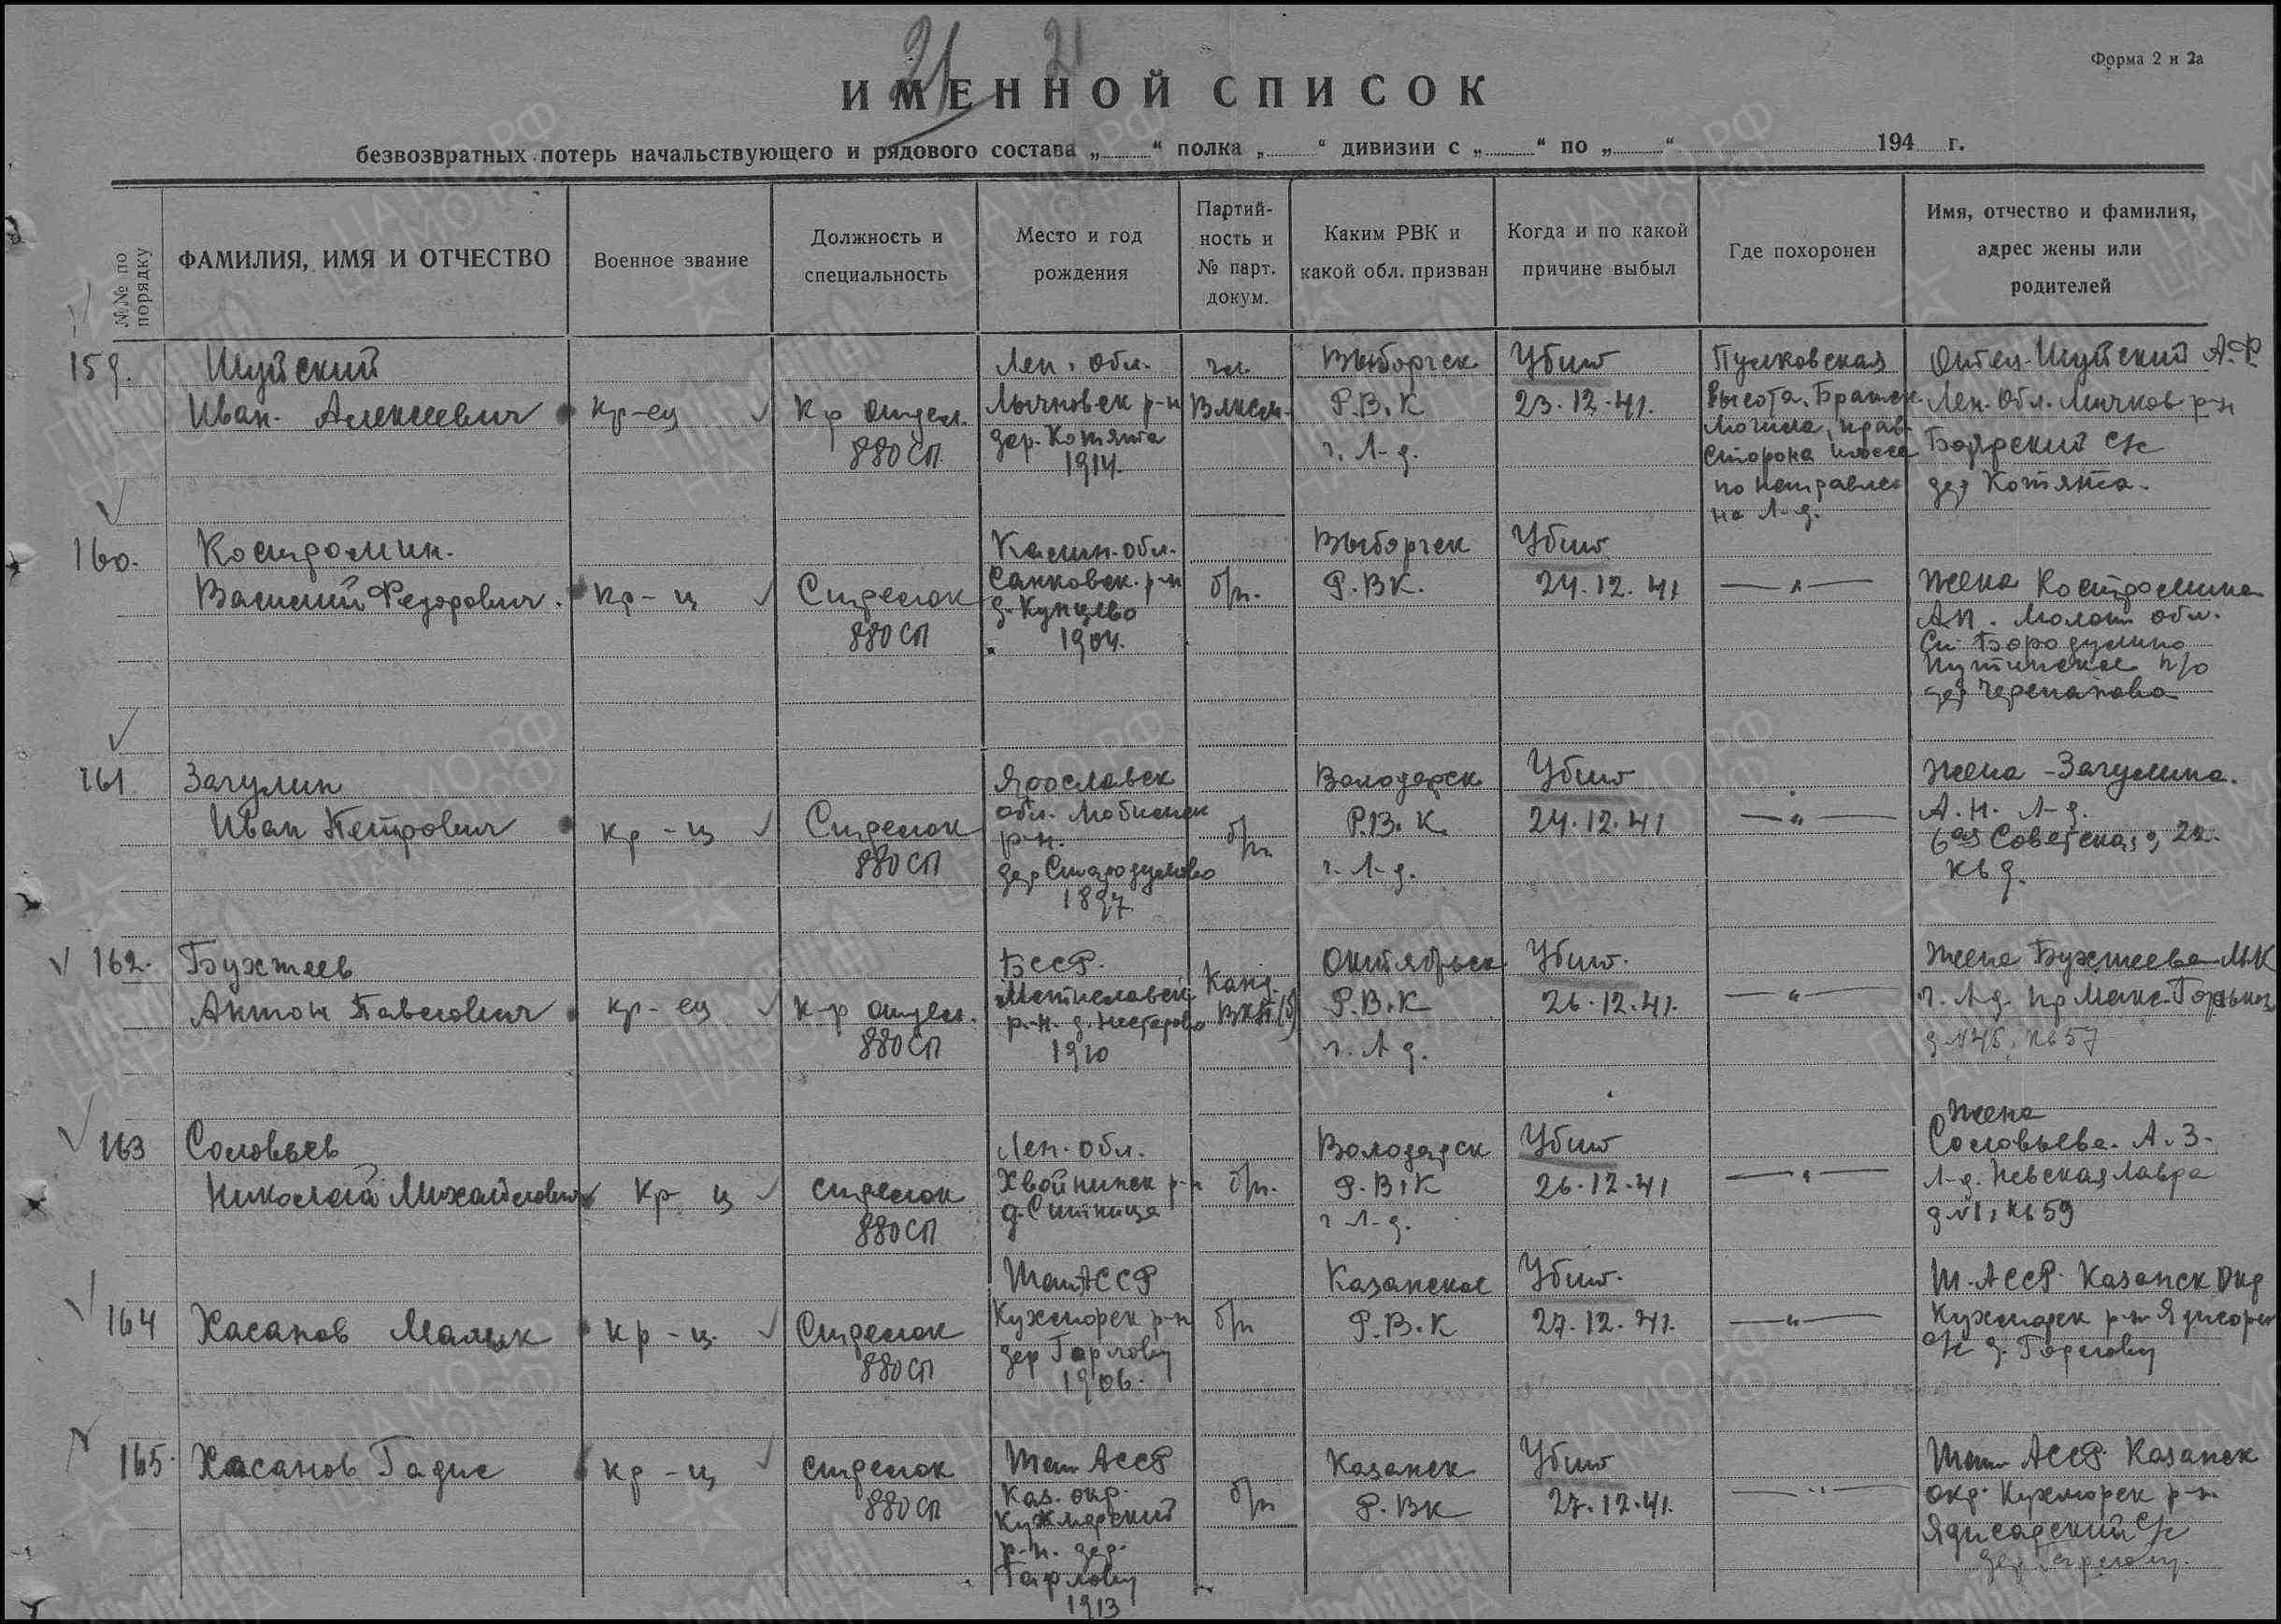 21 21
Форма 2 и 2а
ИМЕННОЙ СПИСОК
безвозвратных потерь начальствующего и рядового состава „ “ полка „ “ дивизии с „ “ по „ “ 194 г.
№№ по порядку
ФАМИЛИЯ, ИМЯ И ОТЧЕСТВО
Военное звание
Должность и
специальность
Место и год
рождения
Партий-
ность и
№ парт.
докум.
Каким РВК и
какой обл. призван
Когда и по какой
причине выбыл
Где похоронен
Имя, отчество и фамилия,
адрес жены или
родителей
159.
Шуйский
Иван Алексеевич
кр-ец
К-р отдел.
880 СП
Лен. обл.
Лычковск р-н
дер. Котята
1914.
чл.
ВЛКСМ.
Выборгск
Р.В.К
г. Л-д.
Убит
23.12.41.
Пулковская
высота. Братск.
могила, прав.
сторона шоссе
по направлен
на Л-д.
Отец Шуйский А.Ф
Лен. Обл. Лычков р-н
Боярский с/с
дер Котята.
160.
Костромин.
Василий Федорович.
Кр-ц
Стрелок
880 СП
Калин. обл.
Санковск. р-н
д. Кунцево
1904.
б/п.
Выборгск
Р.ВК.
Убит
24.12.41
— " —
Жена Костромина
А.П. Молот обл.
ст. Бородулино
п/о
дер Черепаново
161
Загулин
Иван Петрович
кр-ц
Стрелок
880 СП
Ярославск
обл. Любимск
р-н.
дер Стародумово
1897
б/п
Володарск
Р.В.К.
г. Л-д.
Убит
24.12.41
— " —
Жена - Загулина.
А.Н. Л-д.
6ая Советская,
кв 9.
162.
Бухтеев
Антон Павлович
кр-ец
К-р отдел.
880 СП
БССР.
Мстиславск
р-н. д. Нестерово
1910
Канд.
ВКП(б)
Октябрьск
Р.В.К
г. Л д.
Убит.
26.12.41.
— " —
Жена Бухтеева М.К
г. Л-д. пр Макс. Горького
д N 45, кв 57
163
Соловьев
Николай Михайлович
Кр ц
стрелок
880 СП
Лен. обл.
Хвойнинск р-н
д. Ситница
б/п.
Володарск
Р.В.К
г Л-д.
Убит
26.12.41
— " —
Жена
Соловьева. А.З.
Л-д. Невская лавра
д N 1, кв 59
164
Хасанов Малик
кр-ц.
Стрелок
880 СП
Тат АССР
Кукморск р-н
дер
1906.
б/п
Казанское
Р.В.К
Убит.
27.12.41.
— " —
Т. АССР. Казанск окр
Кукморск р-н
с/с д.
165.
Хасанов Гадис
кр-ц
стрелок
880 СП
Тат АССР
Каз. окр.
Кукморский
р-н. дер.
1913
б/п
Казанск
Р.ВК
Убит
27.12.41.
— " —
Тат АССР Казанск
окр. Кукморск р-н.
с/с
дер.